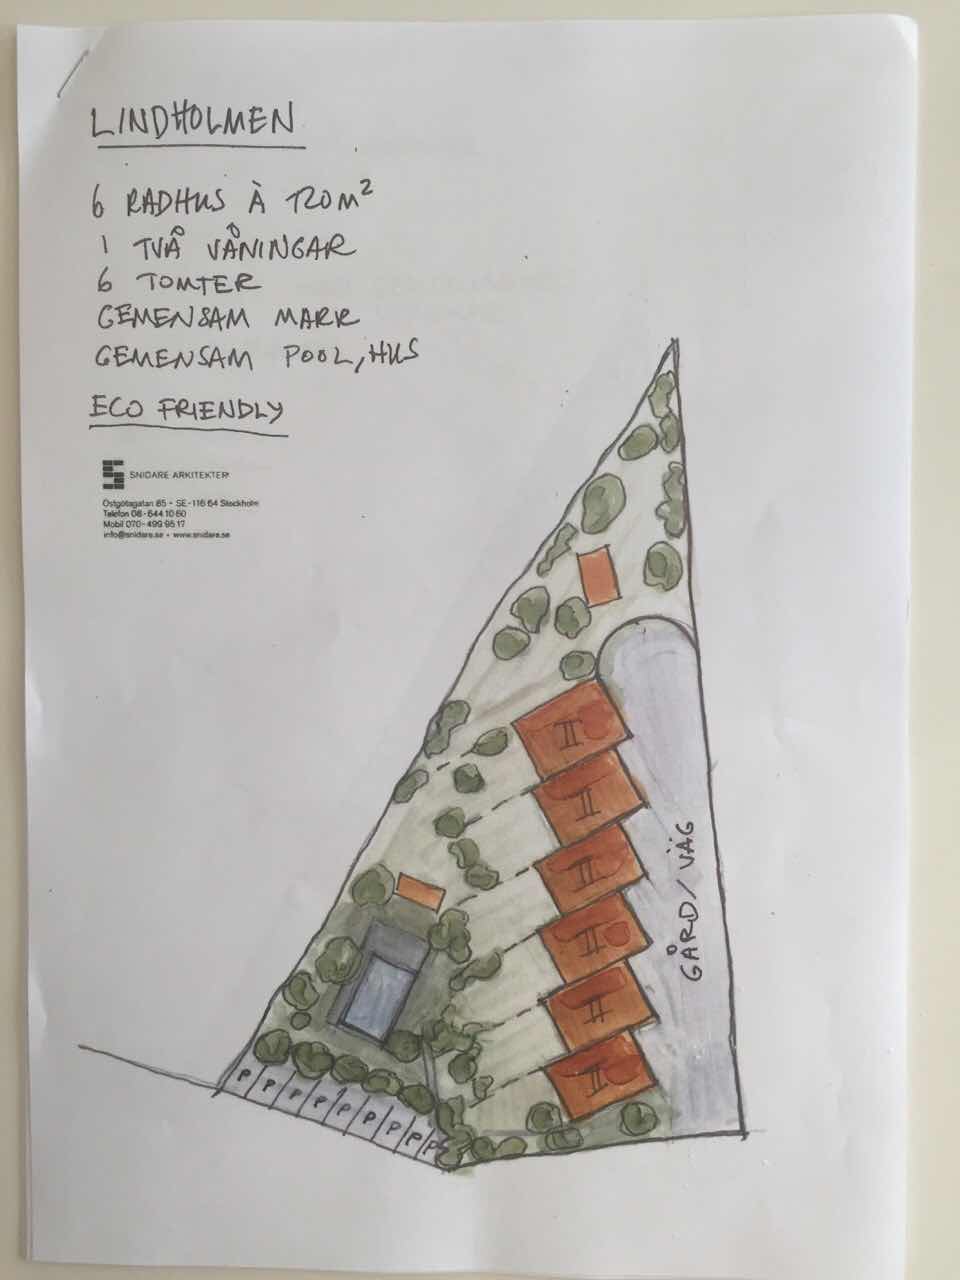 LINDHOLMEN
6 RADHUS À 120 M²
I TVÅ VÅNINGAR
6 TOMTER
GEMENSAM MARK
GEMENSAM POOL, HUS
ECO FRIENDLY
SNIDARE ARKITEKTER
Östgötagatan 85 • SE-116 64 Stockholm
Telefon 08-644 10 60
Mobil 070-499 95 17
info@snidare.se • www.snidare.se
II
II
II
II
II
II
GÅRD/VÄG
P P P P P P P P P